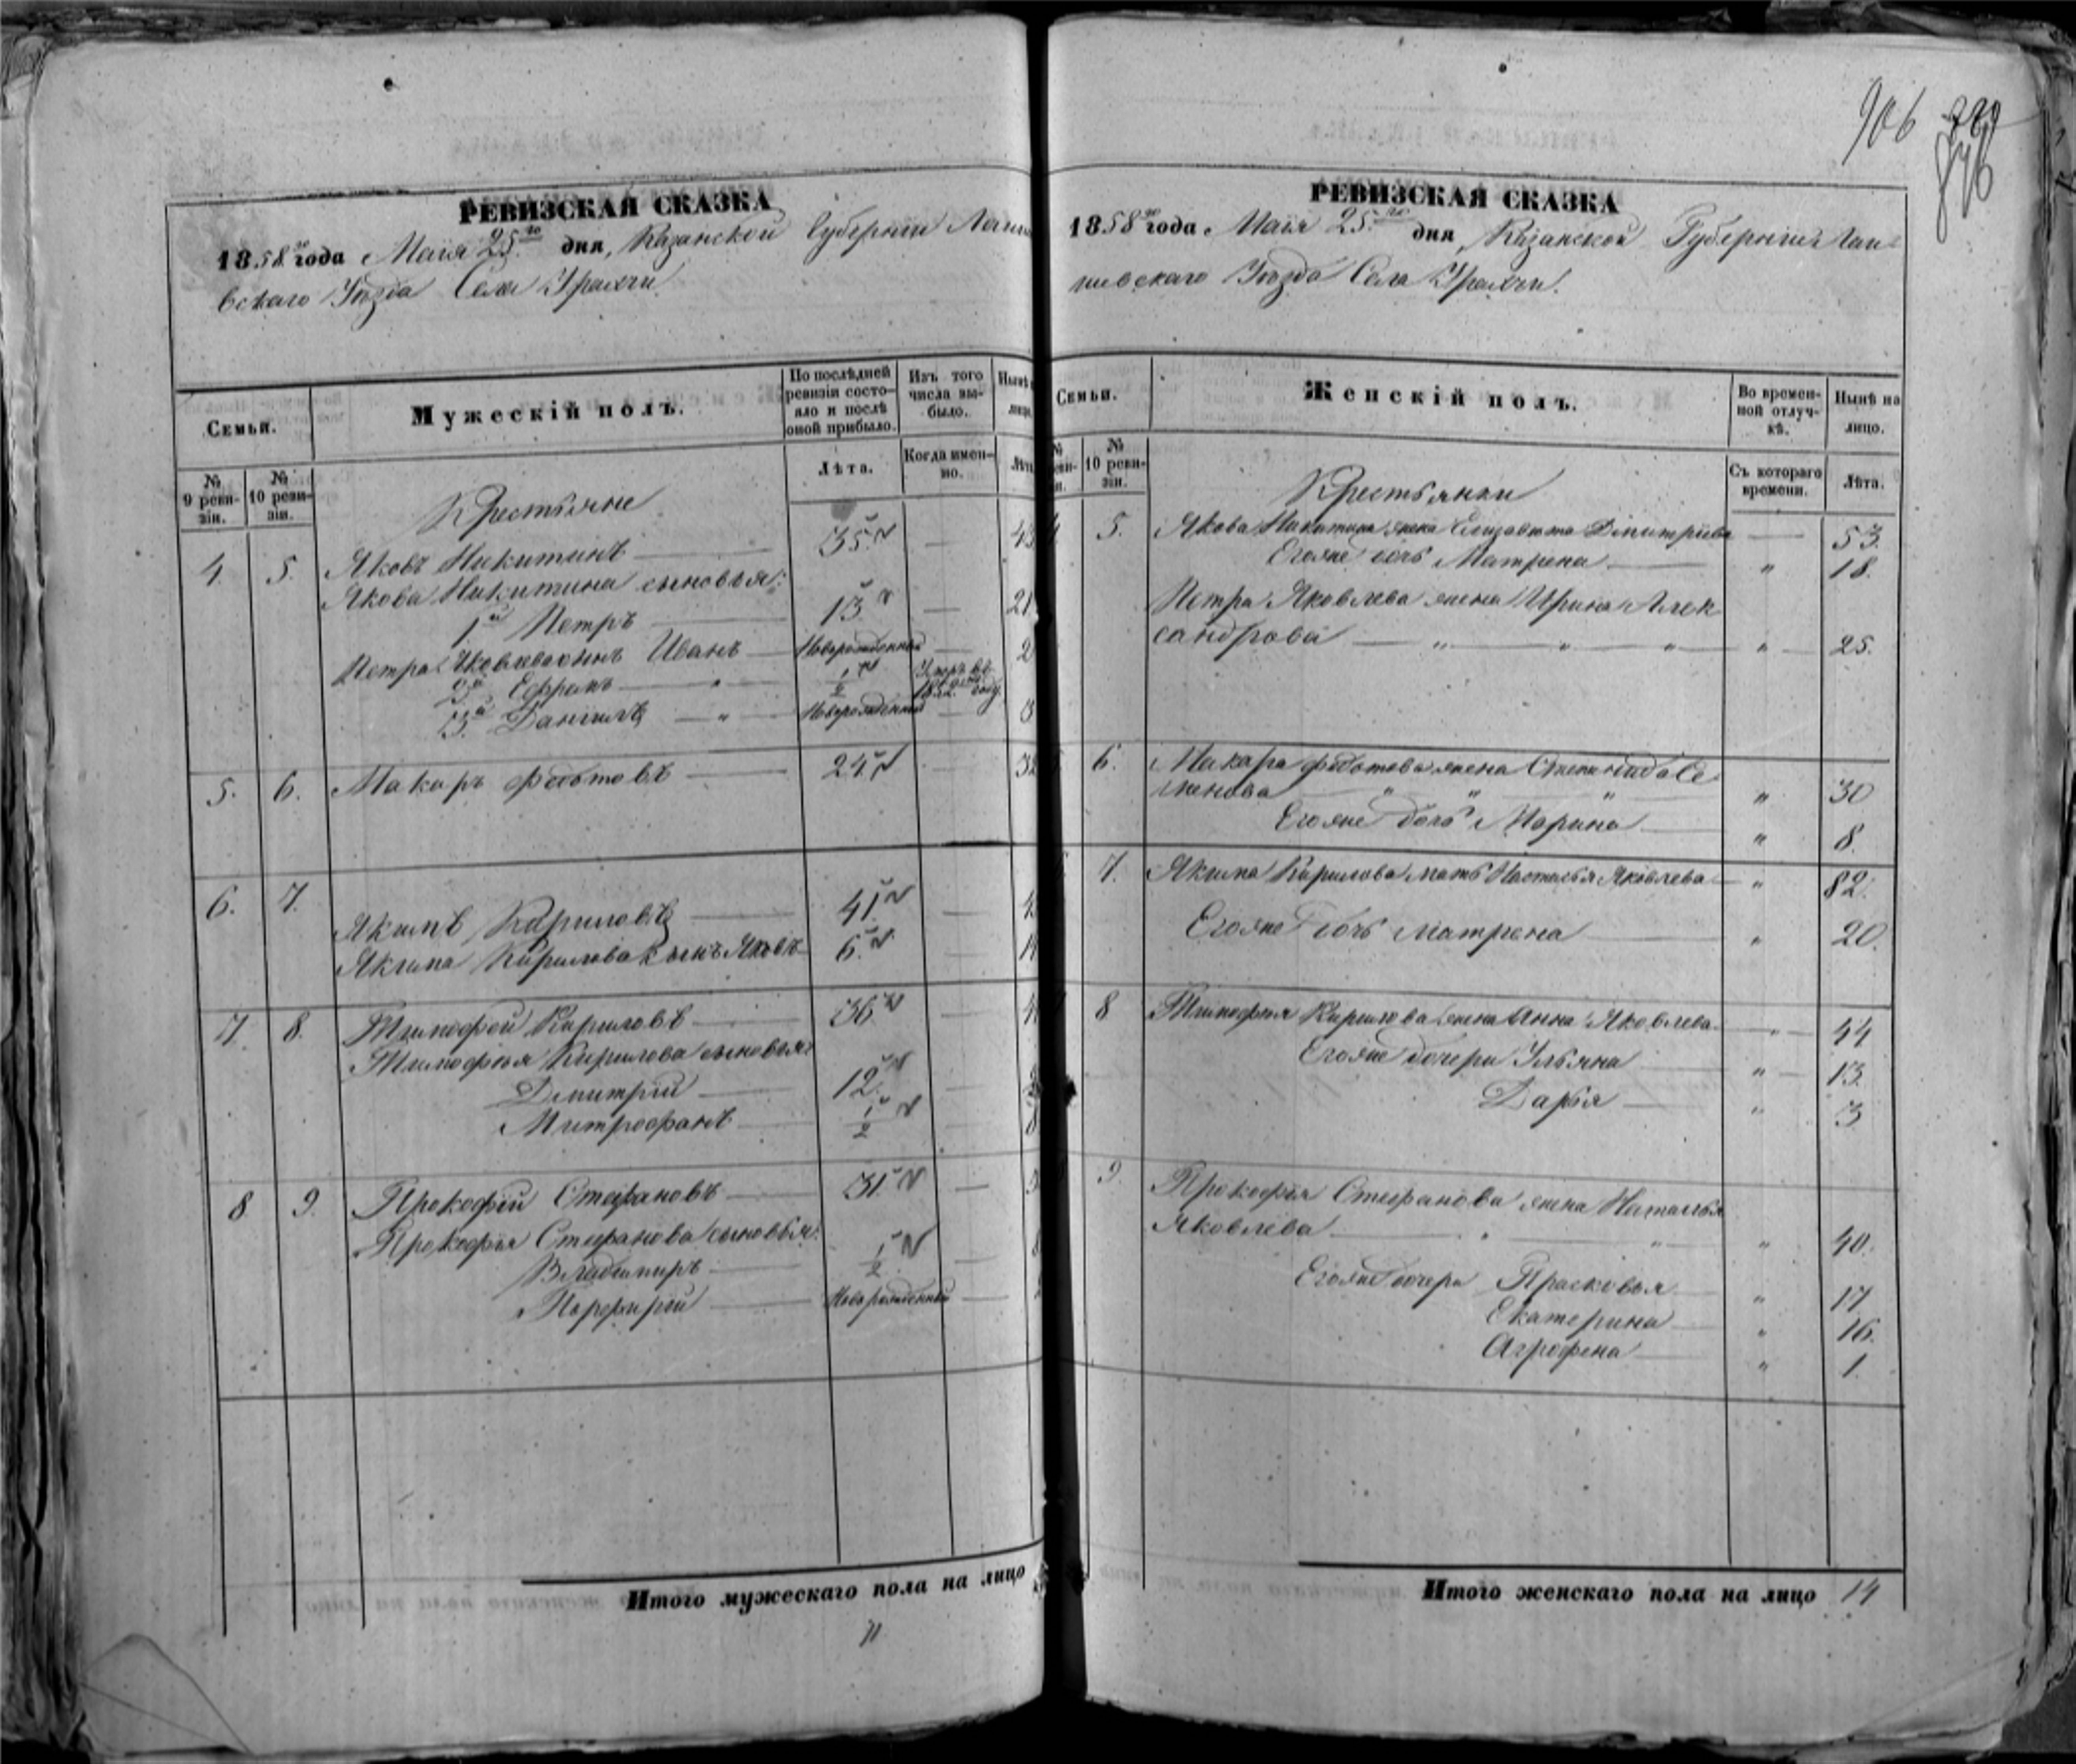 906 846
РЕВИЗСКАЯ СКАЗКА
1858го года Маія 25го дня, Казанской Губерніи Лаиш
вскаго Уѣзда Села Урахчи
Семьи.
Мужескій полъ.
По послѣдней ревизіи состояло и послѣ оной прибыло.
Изъ того числа выбыло.
Нынѣ
лицо.
№ 9 ревизіи.
№ 10 ревизіи.
Лѣта.
Когда именно.
Лѣта
Крестьяне
4. 5. Яковъ Никитинъ — 35. — 43
Якова Никитина сыновья:
1й Петръ — 13 — 21
Петра Яковлева сынъ Иванъ — Новорожденный — 2
2й Ефремъ — " — 1/2 Умеръ въ 1852 году.
3й Даніилъ — " — Новорожденный —
5. 6. Макаръ Федотовъ — 24 — 32
6. 7. Якимъ Кариловъ — 41 — 4
Якима Кирилова сынъ Яковъ — 6. — 14
7 8. Тимофей Кириловъ — 36 — 4
Тимофея Кирилова сыновья:
Дмитрій — 12. —
Митрофанъ — 1/2 — 8
8 9. Прокофій Стефановъ — 31. — 3
Прокофія Стефанова сыновья:
Владимиръ — 1/2 —
Порфирій — Новорожденный —
Итого мужескаго пола на лицо
11
РЕВИЗСКАЯ СКАЗКА
1858го года Маія 25го дня, Казанской Губерніи Лаи-
шевскаго Уѣзда Села Урахчи.
Семьи.
Женскій полъ.
Во временной отлучкѣ.
Нынѣ на лицо.
№
№ 10 ревизіи.
Съ котораго времени.
Лѣта.
Крестьянки
5. Якова Никитина жена Елизавета Дмитріева — 53.
Егоже дочь Матрена — " 18.
Петра Яковлева жена Ирина Алек
сандрова — " — " — " — " — 25.
6. Макара Федотова жена Степанида Се
менова " " " " 30
Егоже дочь Марина — " 8.
7. Якима Кирилова мать Настасья Яковлева — " 82.
Егоже дочь Матрена — " 20.
8 Тимофея Кирилова жена Анна Яковлева — " — 44
Егоже дочери Ульяна — " — 13.
Дарья — " 3
9. Прокофія Стефанова жена Наталья
Яковлева — " " " 40.
Егоже дочери Прасковья — " 17
Екатерина — " 16.
Агрофена — " 1.
Итого женскаго пола на лицо 14